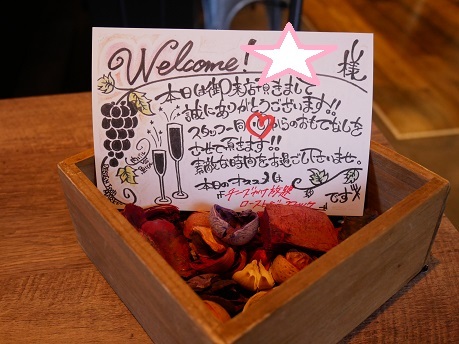 Welcome! 様
本日は御来店頂きまして
誠にありがとうございます!!
スタッフ一同心からのおもてなしを
させて頂きます!!
素敵な時間をお過ごしくださいませ。
本日のオススメは
チーズフォンデュ
ロースト
です